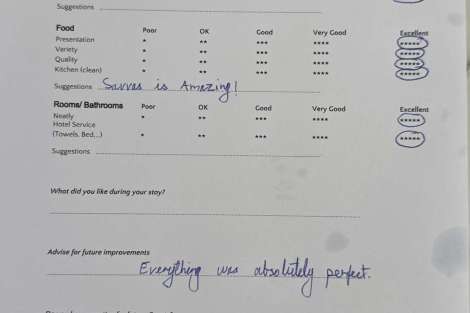 Suggestions
Food Poor OK Good Very Good Excellent
Presentation * ** *** **** *****
Variety * ** *** **** *****
Quality * ** *** **** *****
Kitchen (clean) * ** *** **** *****
Suggestions Savvas is Amazing!
Rooms/ Bathrooms Poor OK Good Very Good Excellent
Neatly * ** *** **** *****
Hotel Service
(Towels, Bed,..) * ** *** **** *****
Suggestions
What did you like during your stay?
Advise for future improvements
Everything was absolutely perfect.